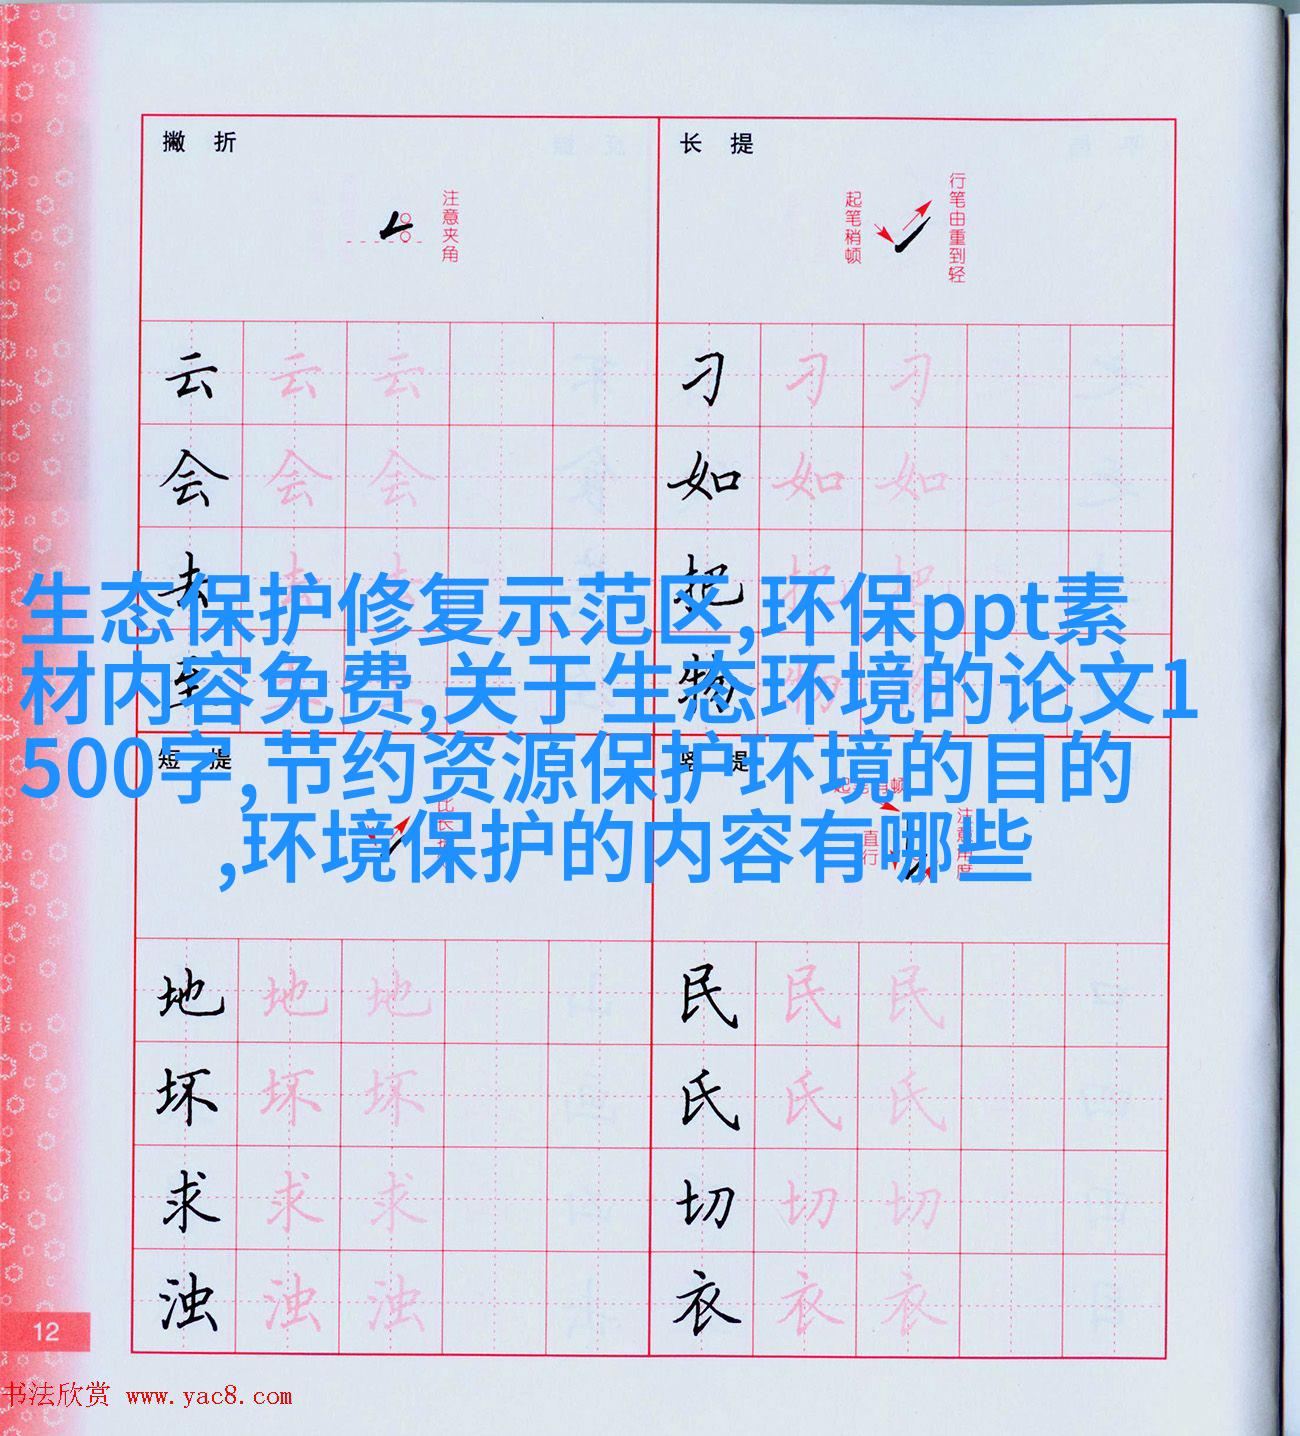 撇 折
注意夹角
长 提
起笔稍顿
行笔由重到轻
云 云 云
刁 刁 刁
会 会 会
如 如 如
去 去 去
把 把 把
至 至 至
物 物 物
生态保护修复示范区,环保ppt素
材内容免费,关于生态环境的论文1
500字,节约资源保护环境的目的
,环境保护的内容有哪些
短 提
竖 提
直行
注意角度
地 地 地
民 民 民
坏 坏 坏
氏 氏 氏
求 求 求
切 切 切
浊 浊 浊
衣 衣 衣
12
书法欣赏 www.yac8.com